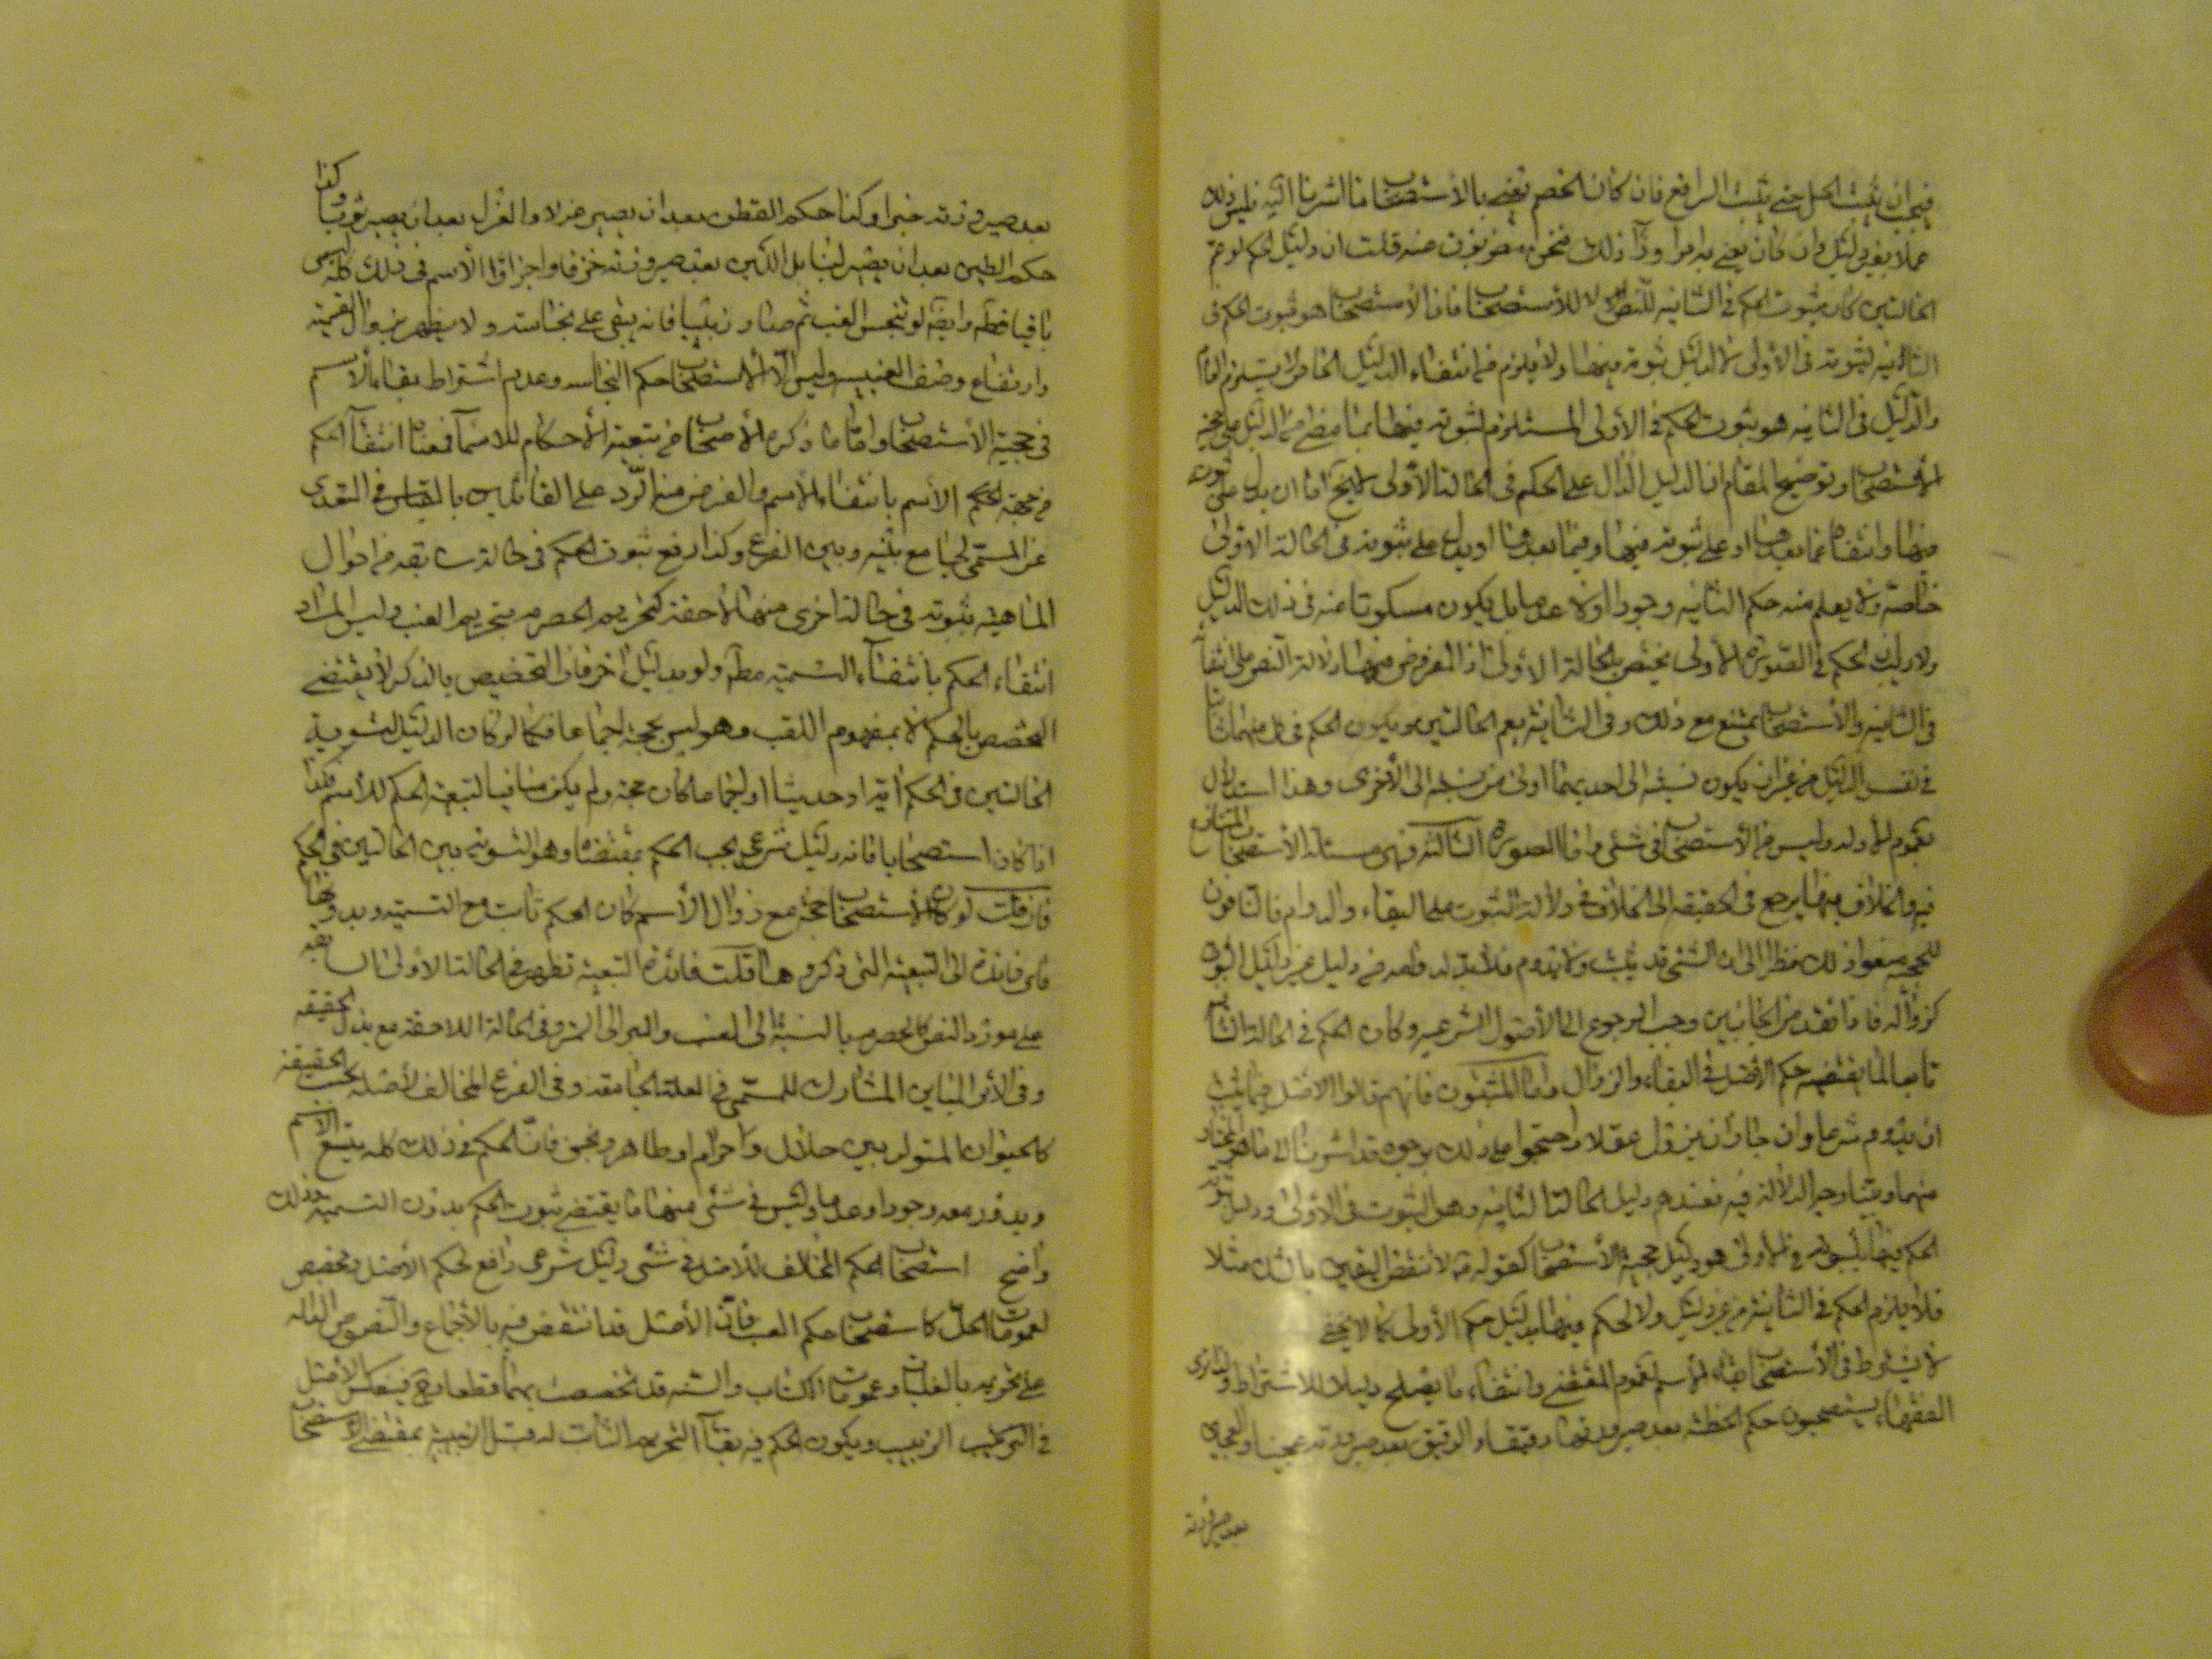 فيجب ان يثبت الحل حتى يثبت الرافع فان كان الخصم يعنى بالأستصحاب ما اشرنا اليه فليس ذلك
عملا بغير دليل وان كان يعنى به امرا وراء ذلك فنحن مضربون عنه قلت ان دليل الحكم لو عم
الحالتين كان ثبوت الحكم فى الثانيه للنص لا للأستصحاب فان الأستصحاب هو ثبوت الحكم فى
الثانيه لثبوته فى الأولى لا لدليل ثبوته فيهما ولا يلزم من انتفاء الدليل الخاص
والدليل فى الثانيه هو ثبوت الحكم فى الأولى المستلزم لثبوته فيها بما مضى من الدليل على حجية
الأستصحاب وتوضيح المقام ان الدليل الدال على الحكم فى الحالة الأولى لا يخ اما ان يدل على ثبوته
فيها وانتفائه عما بعدها او على ثبوته فيها وفيما بعدها او يدل على ثبوته فى الحالة الاولى
خاصة ولا يعلم منه حكم الثانيه وجودا ولا عدما بل يكون مسكوتا عنه فى ذلك الدليل
ولا ريب ان الحكم فى الصورة الأولى يختص بالحالة الأولى اذ المفروض فيها دلالة النص على انتفائه
فى الثانيه والأستصحاب يمتنع مع ذلك وفى الثانية يعم الحالتين ويكون الحكم فى كل منهما ثابتا
فى نفس الدليل من غير ان يكون نسبته الى احديهما اولى من نسبته الى الأخرى وهذا استدلال
بعموم الدليل وليس من الأستصحاب فى شئ واما الصورة الثالثة فهى مسئلة الأستصحاب المتنازع
فيه والخلاف فيها يرجع فى الحقيقه الى الخلاف فى دلالة الثبوت على البقاء والدوام فالنافون
للحجيه منعوا ذلك نظرا الى ان الشئ قد يثبت ولا يدوم فلا بد لدوامه من دليل غير دليل الثبوت
كزواله فاذا فقد من الجانبين وجب الرجوع الى الأصول الشرعيه وكان الحكم فى الحالة الثانيه
تابعا لما يقتضيه حكم الأصل فى البقاء والزوال واما المثبتون فانهم قالوا الاصل فيما يثبت
ان يدوم شرعا وان جاز ان يزول عقلا واحتجوا على ذلك بوجوه قد اشرنا الى ما هو المختار
منها وبينا وجه الدلالة فيه فعندهم دليل الحالة الثانيه وهو الثبوت فى الأولى ودليل ثبوت
الحكم فيها لثبوته فى الأولى هو دليل حجية الأستصحاب كقوله لا تنقض اليقين بالشك مثلا
فلا يلزم الحكم فى الثانية من غير دليل ولا الحكم فيها بدليل حكم الأولى كما لا يخفى
لا يشترط فى الأستصحاب بقاء الأسم لعموم المقتضى وانتفاء ما يصلح دليلا للاشتراط ولذا ترى
الفقهاء يستصحبون حكم الحنطة بعد صيرورتها دقيقا والدقيق بعد صيرورته عجينا والعجين
بعد صيرورته
بعد صيرورته خبزا وكذا حكم القطن بعد ان يصير غزلا والغزل بعد ان يصير ثوبا وكذا
حكم الطين بعد ان يصير لبنا بل اللبن بعد صيرورته خزفا واجرا والاسم فى ذلك كله ليس
باقيا قطعا وايضا لو تنجس العنب ثم صار زبيبا فانه يبقى على نجاسته ولا يطهر بزوال التسمية
وارتفاع وصف العنبيه وليس الا لأستصحاب حكم النجاسه وعدم اشتراط بقاء الأسم
فى حجية الأستصحاب واما ما ذكره الأصحاب من تبعية الأحكام للاسماء فمعناه انتفاء الحكم
من جهة الأسم بانتفاء الأسم والغرض منه الرد على القائلين بالقياس فى التعدى
عن المسمى لجامع بينه وبين الفرع وكذا رفع ثبوت الحكم فى حالة سابقه من احوال
الماهيه بثبوته فى حالة اخرى منها لاحقة كتحريم الحصرم بتحريم العنب وليس المراد
انتفاء الحكم بانتفاء التسميه مطلقا ولو بدليل اخر فان التخصيص بالذكر لا يقتضى
التخصيص بالحكم الا بمفهوم اللقب وهو ليس بحجة اجماعا فكما لو كان الدليل لتسوية
الحالتين فى الحكم اية او حديثا او اجماعا كان حجة ولم يكن منافيا لتبعية الحكم للأسم فكذا
اذا كان استصحابا فانه دليل شرعى يجب الحكم بمقتضاه وهو التسويه بين الحالتين فى الحكم
فان قلت لو كان الأستصحاب حجة مع زوال الأسم كان الحكم ثابت مع التسميه وبدونها
فاى فائدة الى التبعية التى ذكروها قلت فائدة التبعية تظهر فى الحالة الأولى السابقه
على مورد النص كالحصرم بالنسبة الى العنب والبسر الى التمر وفى الحالة اللاحقة مع تبدل الحقيقه
وفى الأمر المباين المشارك للمسمى فى العلة الجامعة وفى الفرع المخالف لأصله بحسب الحقيقة
كالحيوان المتولد بين حلال وحرام او طاهر ونجس فان الحكم فى ذلك كله يتبع الاسم
ويدور معه وجودا وعدما وليس فى شئ منها ما يقتضى ثبوت الحكم بدون التسمية وذلك
واضح استصحاب الحكم المخالف للأصل فى شئ دليل شرعى رافع لحكم الأصل ومخصص
لعمومات الحل كاستصحاب حكم العنب فان الأصل قد انتقض فيه بالأجماع والنصوص الدالة
على تحريمه بالغليان وعمومات الكتاب والسنه قد تخصصت بهما قطعا وح فينعكس الأصل
فى الزبيب ويكون الحكم فيه بقاء التحريم الثابت له قبل الزبيبية بمقتضى الأستصحاب